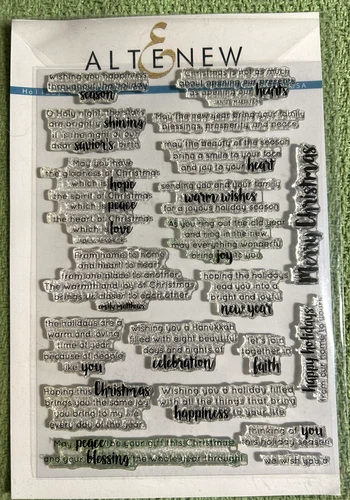 ALTENEW
wishing you happiness
throughout the holiday
season
Christmas is not as much
about opening our presents
as opening our hearts
O Holy night! The stars
are brightly shining
it is the night of our
dear savior's birth
May the new year bring your family
blessings, prosperity and peace
May the beauty of the season
bring a smile to your face
and joy to your heart
May you have
the gladness of Christmas
which is hope
the spirit of Christmas
which is peace
the heart of Christmas
which is love
sending you and your family
warm wishes
for a joyous holiday season
As you ring out the old year
and ring in the new
may everything wonderful
bring you joy
Merry Christmas
From home to home
and heart to heart
from one place to another
The warmth and joy of Christmas
brings us closer to each other
hoping the holiday
lead you into a
bright and joyful
new year
happy holidays
from our home to
the holidays are a
warm and loving
time of year
because of people
like you
wishing you a Hanukkah
filled with eight beautiful
days and nights of
celebration
let's join
together in
faith
Hoping this Christmas
brings you the same joy
you bring to my life
every day of the year
Wishing you a holiday filled
with all the things that bring
happiness to your life
thinking of you
this holiday season
May peace be your gift this Christmas
and your blessing the whole year through
we wish you a